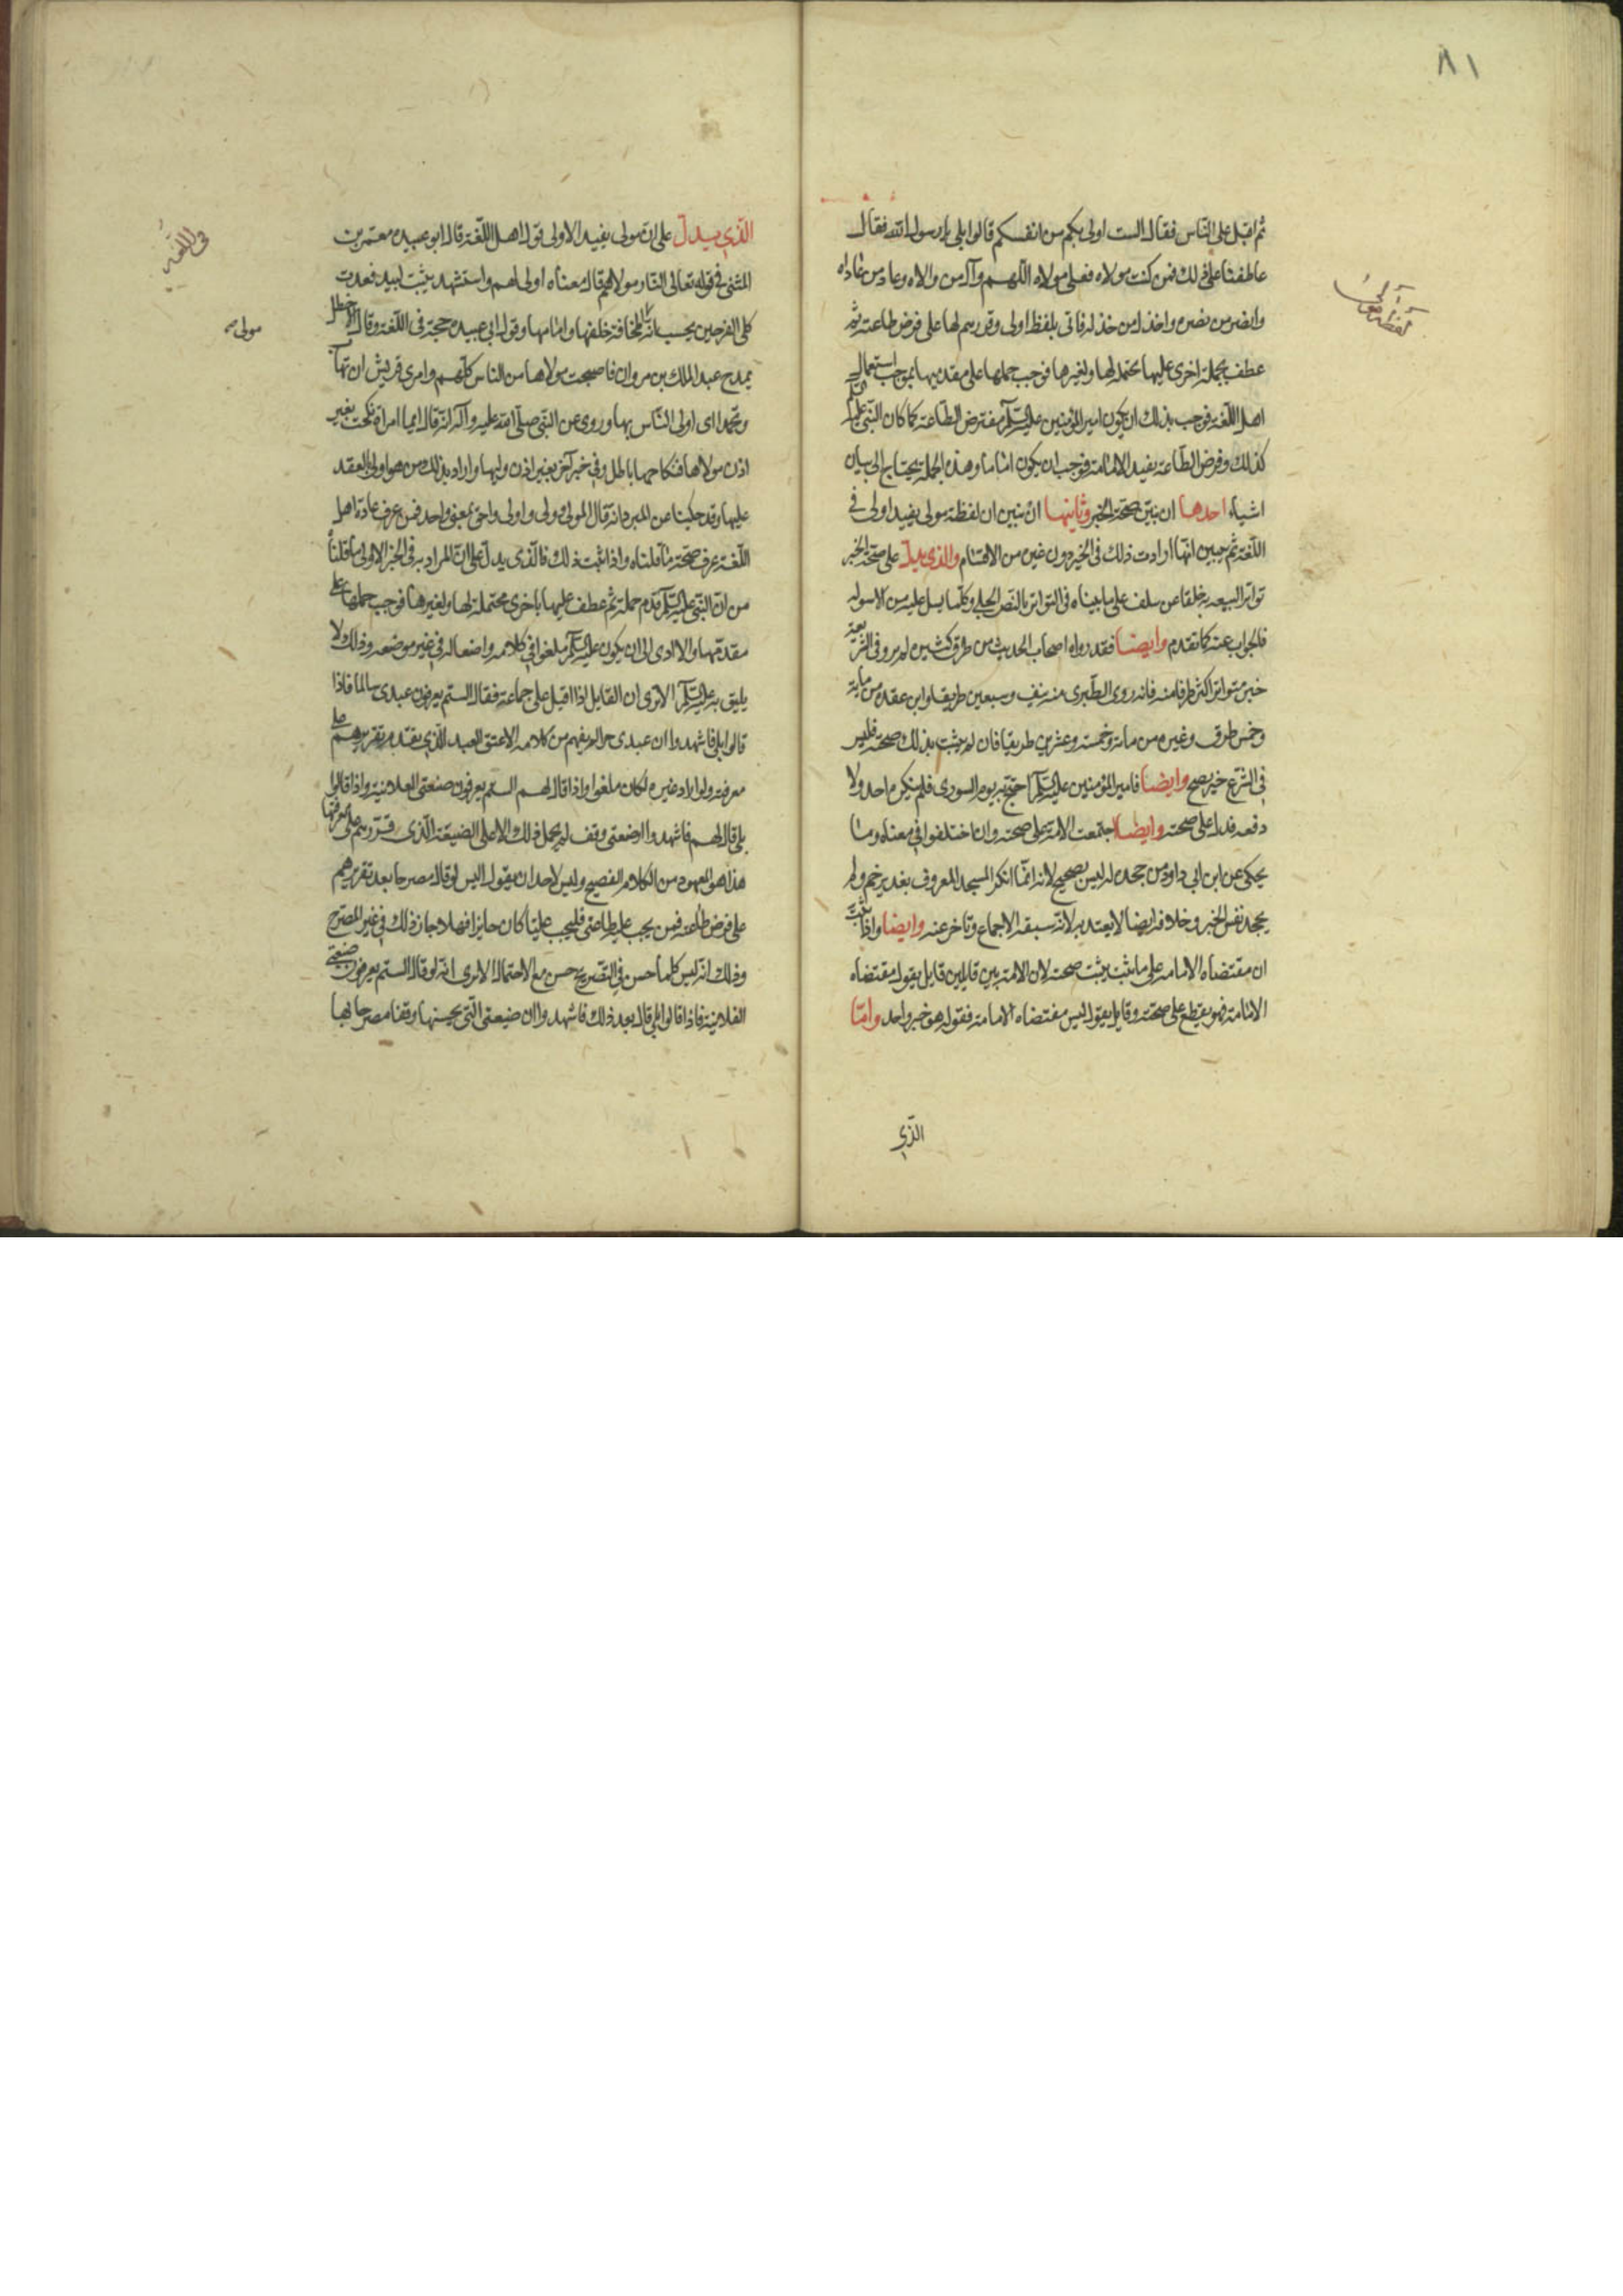 ٨١
ثم اقبل على الناس فقال الست اولى بكم من انفسكم قالوا بلى يا رسول الله فقال
عاطفا على ذلك فمن كنت مولاه فعلى مولاه اللهم وآل من والاه وعاد من عاداه
وانصر من نصره واخذل من خذله فاتى بلفظ اولى وقررهم لها على فرض طاعته ثم
عطف بجملة اخرى عليها محتملة لها ولغيرها فوجب حملها على مقدمها بموجب استعمال
اهل اللغة فوجب بذلك ان يكون امير المؤمنين عليه السلم مفترض الطاعة كما كان النبى عليه السلم
كذلك وفرض الطاعة يفيد الامامة فوجب ان يكون اماما وهذه الجملة يحتاج الى بيان
اشياء احدها ان نبين صحة الخبر وثانيها ان نبين ان لفظة مولى يفيد اولى فى
اللغة ثم نبين انها ارادت ذلك فى الخبر دون غيره من الاقسام والذى يدل على صحة الخبر
تواتر الشيعة به خلفا عن سلف على ما بيناه فى التواتر بالنص الجلى وكلما يسل عليه من الاسوله
فالجواب عنه كما تقدم وايضا فقد رواه اصحاب الحديث من طرق كثيرة لم يرو فى الشريعة
خبر متواتر اكثر طرقا منه فانه روى الطبرى منه نيف وسبعين طريقا وابن عقده من مأية
وخمس طرق وغيره من مأية وخمسة وعشرين طريقا فان لم يثبت بذلك صحته فليس
فى الشرع خبر يصح وايضا فامير المؤمنين عليه السلم احتج به يوم السورى فلم ينكره احد ولا
دفعه فدل على صحته وايضا اجتمعت الامة على صحته وان اختلفوا فى معناه وما
يحكى عن ابن ابى داود من جحده له ليس بصحيح لانه انما انكر المسجد المعروف بغدير خم ولم
يجحد نفس الخبر وخلافه ايضا لا يعتد به لانه سبقه الاجماع وتاخر عنه وايضا واذا ثبت
ان مقتضاه الامامة على ما نثبت يثبت صحته لان الامة بين قايلين قايل يقول مقتضاه
الامامة فهو يقطع على صحته وقايل يقول ليس مقتضاه الامامة فقوله هو خبر واحد واما
الذى
الذى يدل على ان مولى يفيد الاولى قول اهل اللغة قال ابو عبيده معمر بن
المثنى فى قوله تعالى النار مولاهم قال معناه اولى لهم واستشهد ببيت لبيد فغدت
كلى الفرجين يحسب انه مولى المخافة خلفها وامامها وقول ابى عبيده حجة فى اللغة وقال الاخطل
يمدح عبد الملك بن مروان فاصبحت مولاها من الناس كلهم واحرى قريش ان تهاب
وتحمدا اى اولى الناس بها وروى عن النبى صلى الله عليه وآله انه قال ايما امراة نكحت بغير
اذن مولاها فنكاحها باطل وفى خبر آخر بغير اذن وليها واراد بذلك من هو اولى بالعقد
عليها وقد حكينا عن المبرد انه قال المولى ولى واولى واحق بمعنى واحد فمن عرف عادة اهل
اللغة عرف صحة ما قلناه واذا ثبت ذلك فالذى يدل على ان المراد به فى الخبر الاولى ما قلناه
من ان النبى عليه السلم قدم جملة ثم عطف عليها باخرى محتملة لها ولغيرها فوجب حملها على
مقدمها والا ادى الى ان يكون عليه السلم ملغوا فى كلامه واضعا له فى غير موضعه وذلك لا
يليق به عليه السلم الا ترى ان القايل اذا اقبل على جماعة فقال الستم يعرفون عبدى سالما فاذا
قالوا بلى فاشهدوا ان عبدى حر لم يفهم من كلامه الا عتق العبد الذى تقدم تقريرهم على
معرفته ولو اراد غيره لكان ملغوا واذا قال لهم الستم يعرفون ضيعتى الفلانية واذا قالوا
بلى قال لهم فاشهدوا ان ضيعتى وقف لم يحمل ذلك الا على الضيعة الذى قررهم على معرفتها
هذا هو المعهود من الكلام الفصيح وليس لاحد ان يقول اليس لو قال مصرحا بعد تقريرهم
على فرض طاعته فمن يجب عليه طاعتى فليجب عليا كان جايزا فهلا جاز ذلك فى غير المصرح
وذلك انه ليس كلما حسن فى التصريح حسن مع الاحتمال الا ترى انه لو قال الستم يعرفون ضيعتى
الفلانية فاذا قالوا بلى قال بعد ذلك فاشهدوا ان ضيعتى التى وقفنا مصرحا بها
فى اللغة
مولى صح